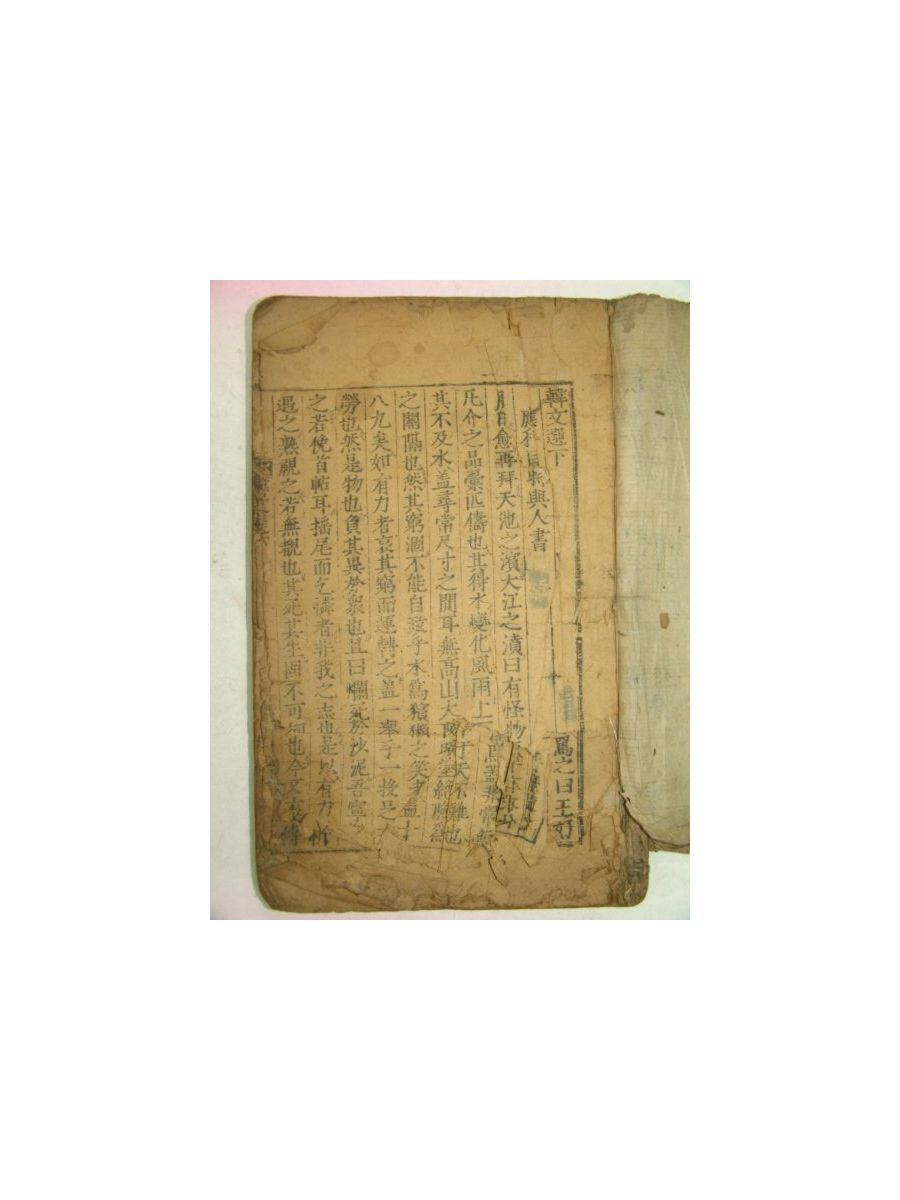 韓文選下
應科目時與人書
月日愈再拜天池之濱大江之濆曰有怪物
凡介之品彙匹儔也其得水變化風雨上下于天不難也
其不及水盖尋常尺寸之間耳無高山大陵曠塗絶險爲
之關隔也然其窮涸不能自致乎水爲獱獺之笑者盖十
八九矣如有力者哀其窮而運轉之盖一舉手一投足之
勞也然是物也負其異於衆也且曰爛死於沙泥吾寧
之若俛首帖耳揺尾而乞憐者非我之志也是以有力
遇之熟視之若無覩也其死其生固不可知也今又有